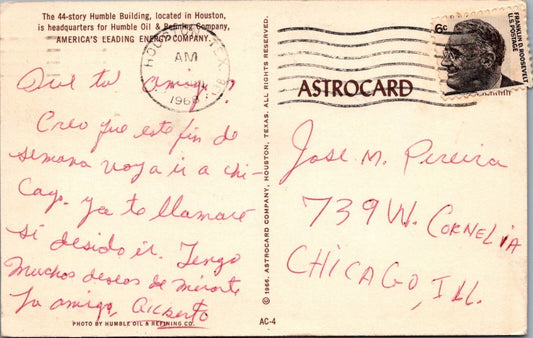 The 44-story Humble Building, located in Houston,
is headquarters for Humble Oil & Refining Company,
AMERICA'S LEADING ENERGY COMPANY.
HOUSTON, TEX
AM
1968
FRANKLIN D. ROOSEVELT
U.S. POSTAGE
6c
ASTROCARD
Que tal amigo?
Creo que este fin de
semana voy a ir a chi-
cago. ya te llamaré
si desido ir. Tengo
muchos deseos de mirarte
Tu amigo, Gilberto
PHOTO BY HUMBLE OIL & REFINING CO.
© 1966, ASTROCARD COMPANY, HOUSTON, TEXAS. ALL RIGHTS RESERVED.
AC-4
Jose M. Pereira
739 W. CORNELIA
CHICAGO, ILL.